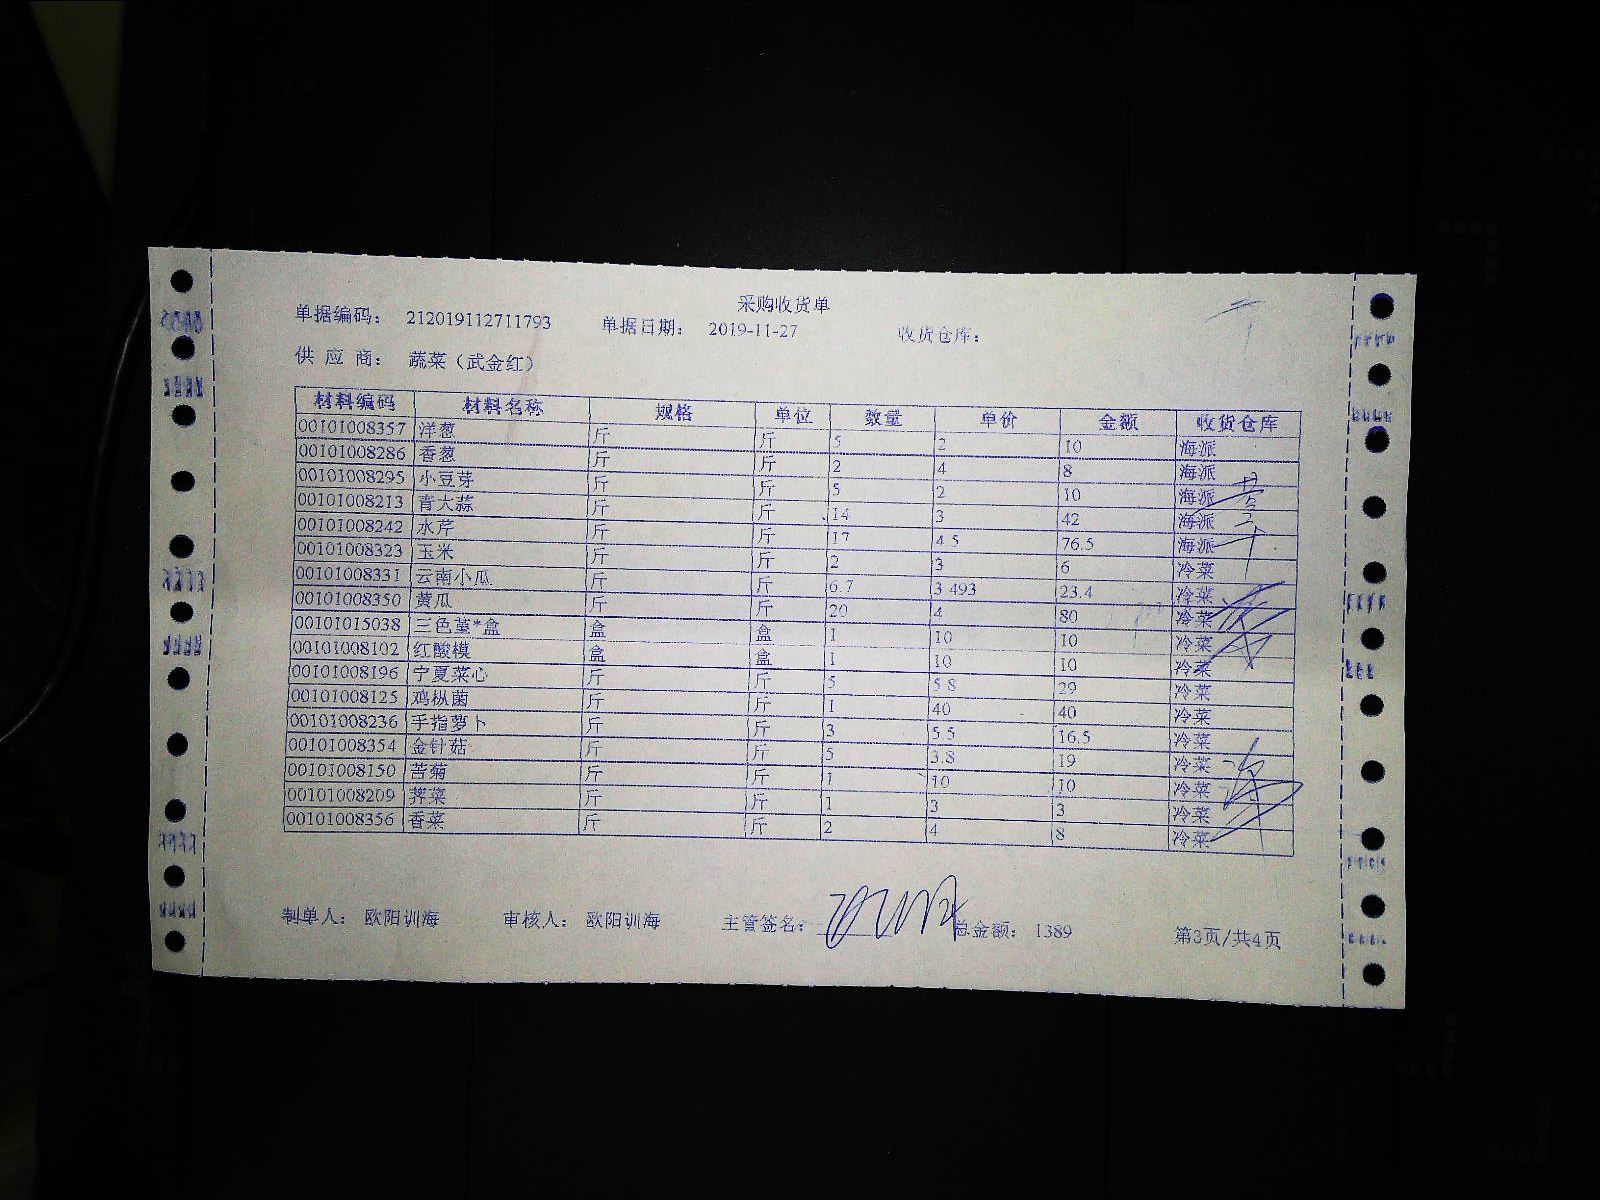 采购收货单
单据编码： 212019112711793 单据日期： 2019-11-27 收货仓库：
供 应 商： 蔬菜（武金红）
材料编码 材料名称 规格 单位 数量 单价 金额 收货仓库
00101008357 洋葱 斤 斤 5 2 10 海派
00101008286 香葱 斤 斤 2 4 8 海派
00101008295 小豆芽 斤 斤 5 2 10 海派
00101008213 青大蒜 斤 斤 14 3 42 海派
00101008242 水芹 斤 斤 17 4.5 76.5 海派
00101008323 玉米 斤 斤 2 3 6 冷菜
00101008331 云南小瓜 斤 斤 6.7 3.493 23.4 冷菜
00101008350 黄瓜 斤 斤 20 4 80 冷菜
00101015038 三色堇*盒 盒 盒 1 10 10 冷菜
00101008102 红酸模 盒 盒 1 10 10 冷菜
00101008196 宁夏菜心 斤 斤 5 5.8 29 冷菜
00101008125 鸡枞菌 斤 斤 1 40 40 冷菜
00101008236 手指萝卜 斤 斤 3 5.5 16.5 冷菜
00101008354 金针菇 斤 斤 5 3.8 19 冷菜
00101008150 苦菊 斤 斤 1 10 10 冷菜
00101008209 荠菜 斤 斤 1 3 3 冷菜
00101008356 香菜 斤 斤 2 4 8 冷菜
制单人： 欧阳训海 审核人： 欧阳训海 主管签名： 总金额： 1389 第3页/共4页